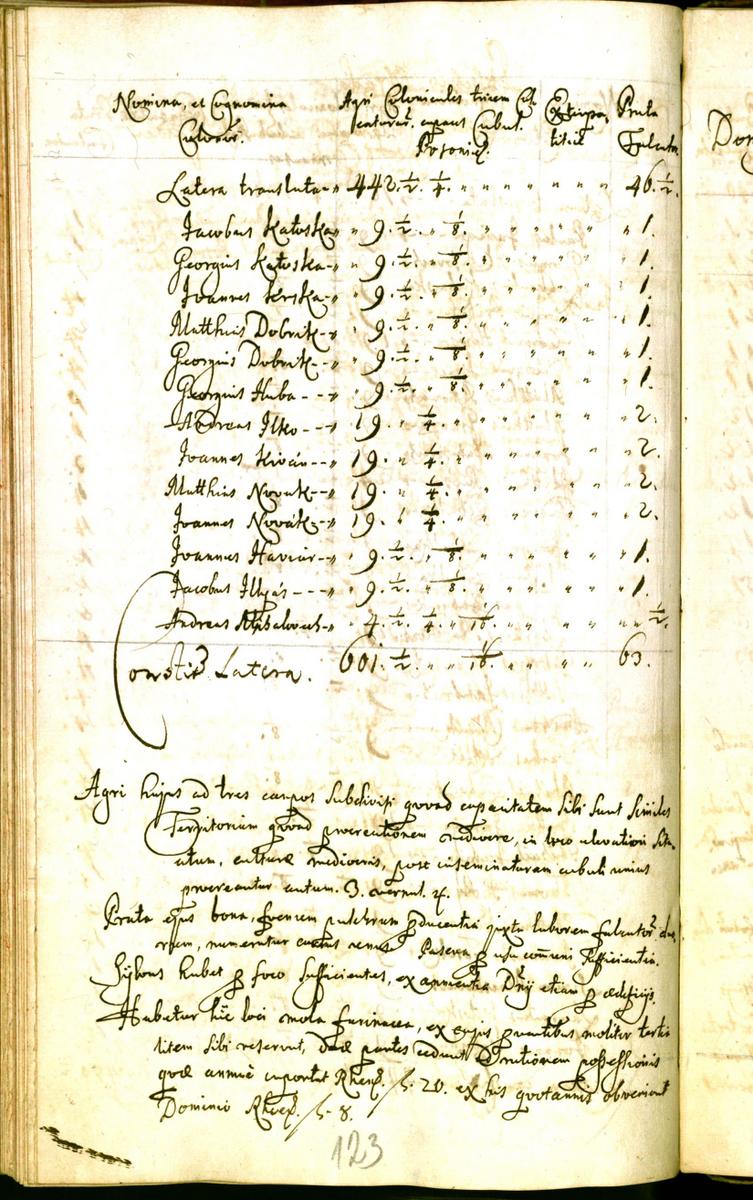 Nomina, et Cognomina Agri Colonicales trium Cal Extirpa Prata
Colonor. caturar. capaces Cubul. titiae Falcator.
Posoniens.
Latera translata 442. 1/2. 1/4. " " " " " " 46. 1/2.
Jacobus Katoska " 9. 1/2. " 1/8. " " " " " 1.
Georgius Katoska " 9. 1/2. " 1/8. " " " " " 1.
Joannes Krska " 9. 1/2. " 1/8. " " " " " 1.
Matthias Dobrik " 9. 1/2. " 1/8. " " " " " 1.
Georgius Dobrik " 9. 1/2. " 1/8. " " " " " 1.
Georgius Huba " 9. 1/2. " 1/8. " " " " " 1.
Andreas Ilko " 19. " 1/4. " " " " " " 2.
Joannes Kiván " 19. " 1/4. " " " " " " 2.
Matthias Novak " 19. " 1/4. " " " " " " 2.
Joannes Novák " 19. " 1/4. " " " " " " 2.
Joannes Haviár " 9. 1/2. " 1/8. " " " " " 1.
Jacobus Illyás " 9. 1/2. " 1/8. " " " " " 1.
Andreas " 4. 1/2. 1/4. " 1/16. " " " " " 1/2.
Latera. 601. 1/2. " " 1/16. " " " " 63.
Agri hujus ad tres campos subdivisi quoad capacitatem sibi sunt similes
Territorium quoad procreationem mediocre, in loco elevatiori situ-
atum, culturae mediocris, post inseminaturam cubuli unius
procreantur autum. 3. vernal. 4.
Prata ejus bona, foenum pulchrum producentia juxta laborem falcator.
numerantur currus Pascua pro usu communi sufficientia.
Sylvas habet pro foco sufficientes, ex annuentia Dnij etiam pro aedeficijs.
Habetur hic loci mola farinacea, ex cujus proventibus molitor tertia
litem sibi reservat, duae partes cedunt possessionis
quae annue importat Rhen. f. 20. ex his quotannis obveniunt
Dominio Rhen. f. 8.
123